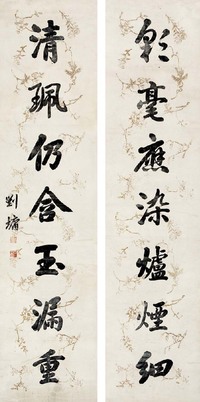 彩毫應染爐煙細
清珮仍含玉漏重
劉墉